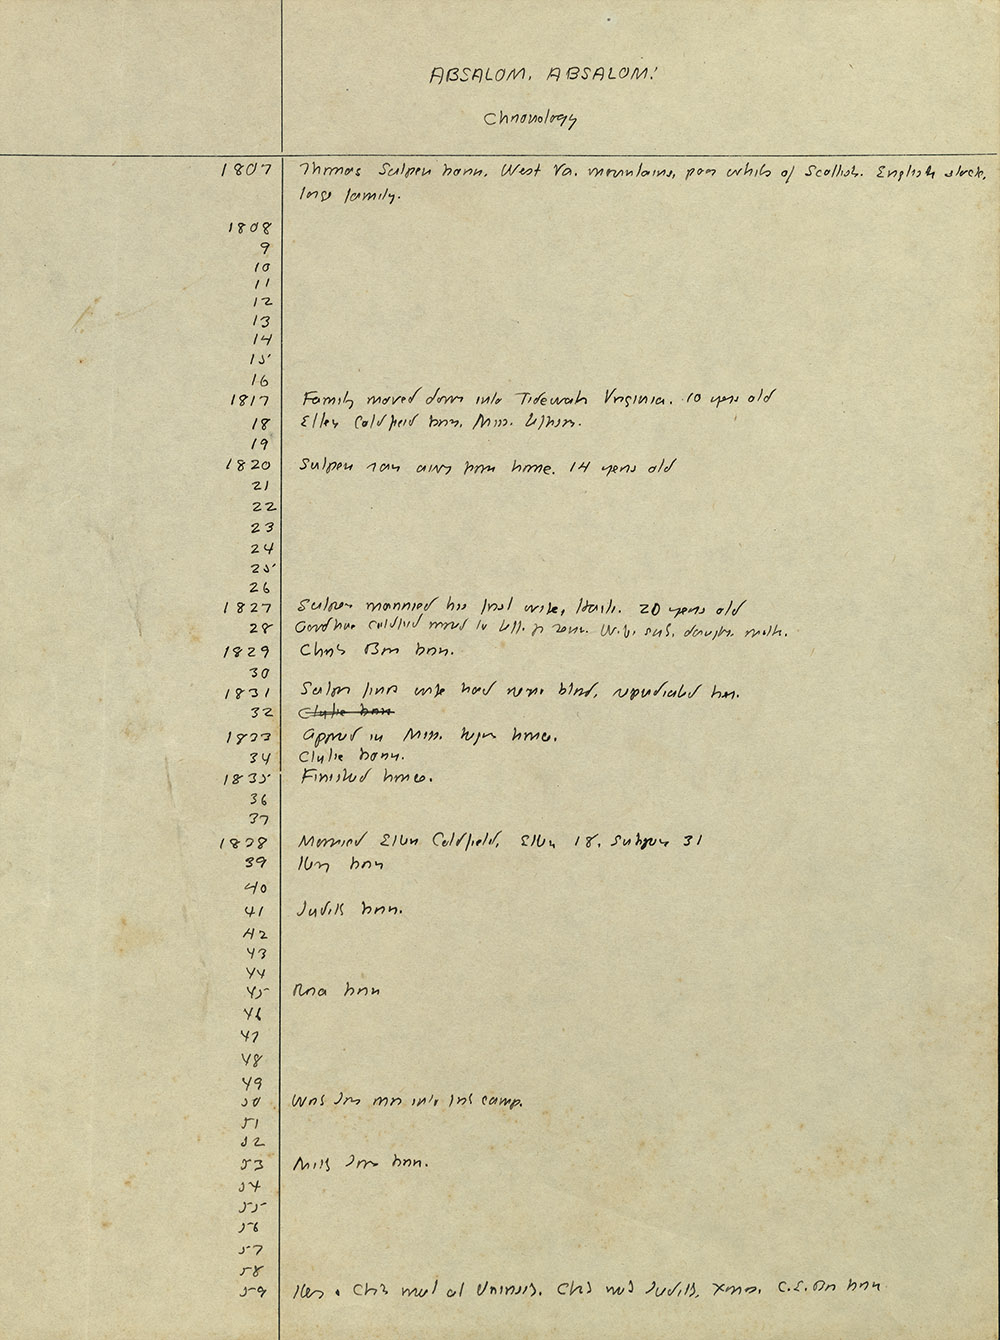 ABSALOM, ABSALOM!
Chronology
1807 Thomas Sutpen born. West Va. mountains, poor whites of Scottish. English stock.
large family.
1808
9
10
11
12
13
14
15
16
1817 Family moved down into Tidewater Virginia. 10 years old
18 Ellen Coldfield born,
19
1820 Sutpen ran away from home. 14 years old
21
22
23
24
25
26
1827 Sutpen married his first wife, Haiti. 20 years old
28 Goodhue Coldfield moved to
1829 Chas Bon born.
30
1831 Sutpen finds wife had negro blood, repudiated her.
32 Clytie born
1833 Appred in Miss. began house.
34 Clytie born.
1835 Finished house.
36
37
1838 Married Ellen Coldfield, Ellen 18, Sutpen 31
39 Hen born
40
41 Judith born.
42
43
44
45 Rosa born
46
47
48
49
50 Wash Jones moves into camp.
51
52
53 Milly Jones born.
54
55
56
57
58
59 Hen & Chas meet at University. Chas meets Judith, Xmas. C.E. Bon born